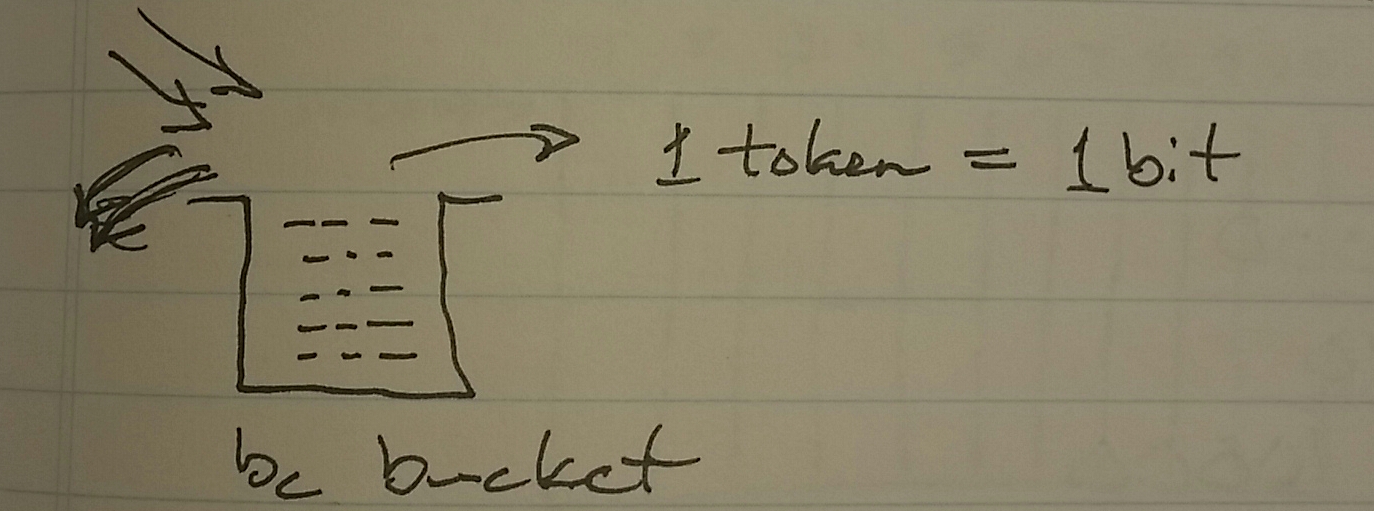 1 token = 1 bit
bc bucket